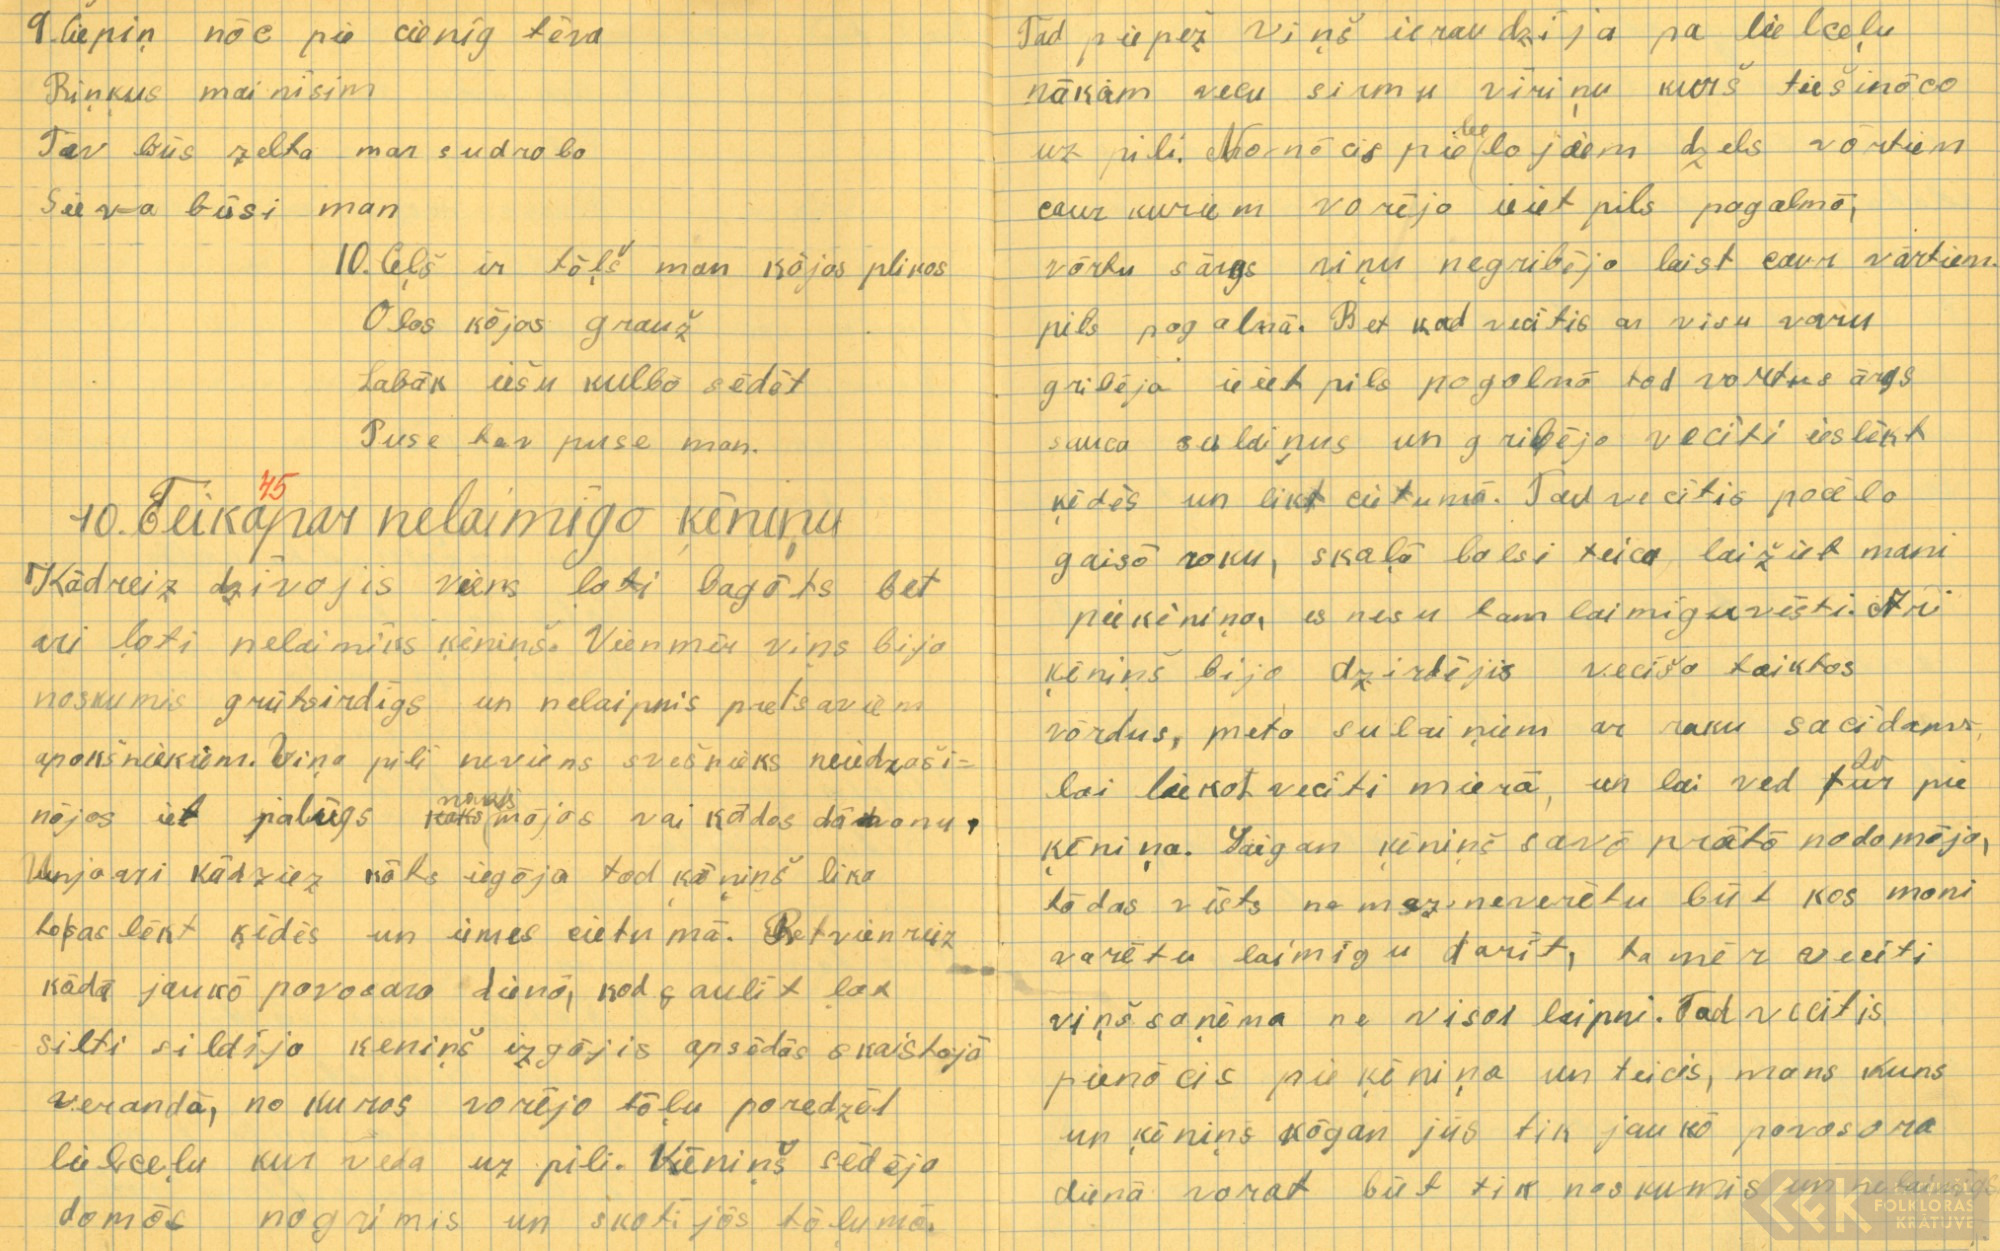 9. Čiepiņ nōc pie cienīg tēva
Riņķus mainīsim
Tav būs zelta man sudraba
Sieva būsi man
10. Ceļš ir tōļš man kōjas plikas
Olas kōjas grauž
Labāk iešu kulbā sēdēt
Puse tav puse man.
45
10. Teika par nelaimīgo ķēniņu
Kādreiz dzīvojis viens ļoti bagōts bet
ari ļoti nelaimīks ķēniņš. Vienmēr viņs bija
noskumis grūtsirdīgs un nelaipnis pret saviem
apakšniekiem. Viņa pilī neviens svešnieks neiedraši=
nājas iet palūgs naukts mājās vai kādas dāvanu,
Un ja ari kādreiz kāts iegāja tad ķēniņš lika
tos saslēkt ķēdēs un iemes cietumā. Bet vienreiz
kādā jaukō pavasara dienā, kad saulīt ļot
silti sildīja ķeniņš izgājis apsēdās skaistajā
verandā, no kuras varēja tōļu paredzēt
lielceļu kur veda uz pili. Ķēniņš sēdēja
domās nogrimis un skatijās tōļumā.
Tad piepēž viņš ieraudzija pa lielceļu
nākam vecu sirmu viriņu kurš tiešinōca
uz pili. Nonōcis pie lielajiem dzels vārtiem
caur kuriem varēja ieiet pils pagalmā,
vārtu sārgs viņu negribēja laist caur vārtiem.
pils pagalmā. Bet kad vecītis ar visu varu
gribēja ieiet pils pagalmā tad vārtu sārgs
sauca sulaiņus un gribēja vecīti ieslēkt
ķēdēs un likt cietumā. Tad vecītis pacēla
gaisō roku, skaļā balsi teica, laižiet mani
pie ķēniņa, es nesu tam laimīgu vēsti. Ari
ķēniņš bija dzirdējis vecīša teiktos
vārdus, meta sulaiņiem ar roku sacīdams,
lai liekot vecīti mierā, un lai ved šur pie
ķēniņa. Gaigan ķēniņš savā prātā nodomāja,
tādas vīsts ne maz nevarētu būt kas mani
varētu laimīgu darīt, tamēr vecīti
viņš saņēma ne visai laipni. Tad vecītis
pienācis pie ķēniņa un teicis, mans kuns
un ķēniņs kōgan jūs tik jaukō pavasara
dienā varat būt tik noskumis un nelaimīgs
LATVIEŠU
FOLKLORAS
KRĀTUVE